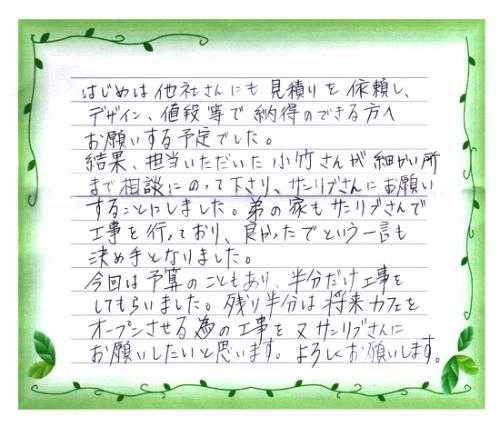 はじめは他社さんにも見積りを依頼し、
デザイン、値段等で納得のできる方へ
お願いする予定でした。
結果、担当いただいた小竹さんが細かい所
まで相談にのって下さり、サンリブさんにお願い
することにしました。弟の家もサンリブさんで
工事を行っており、良かったでという一言も
決め手となりました。
今回は予算のこともあり、半分だけ工事を
してもらいました。残り半分は将来カフェを
オープンさせる為の工事を又サンリブさんに
お願いしたいと思います。よろしくお願いします。